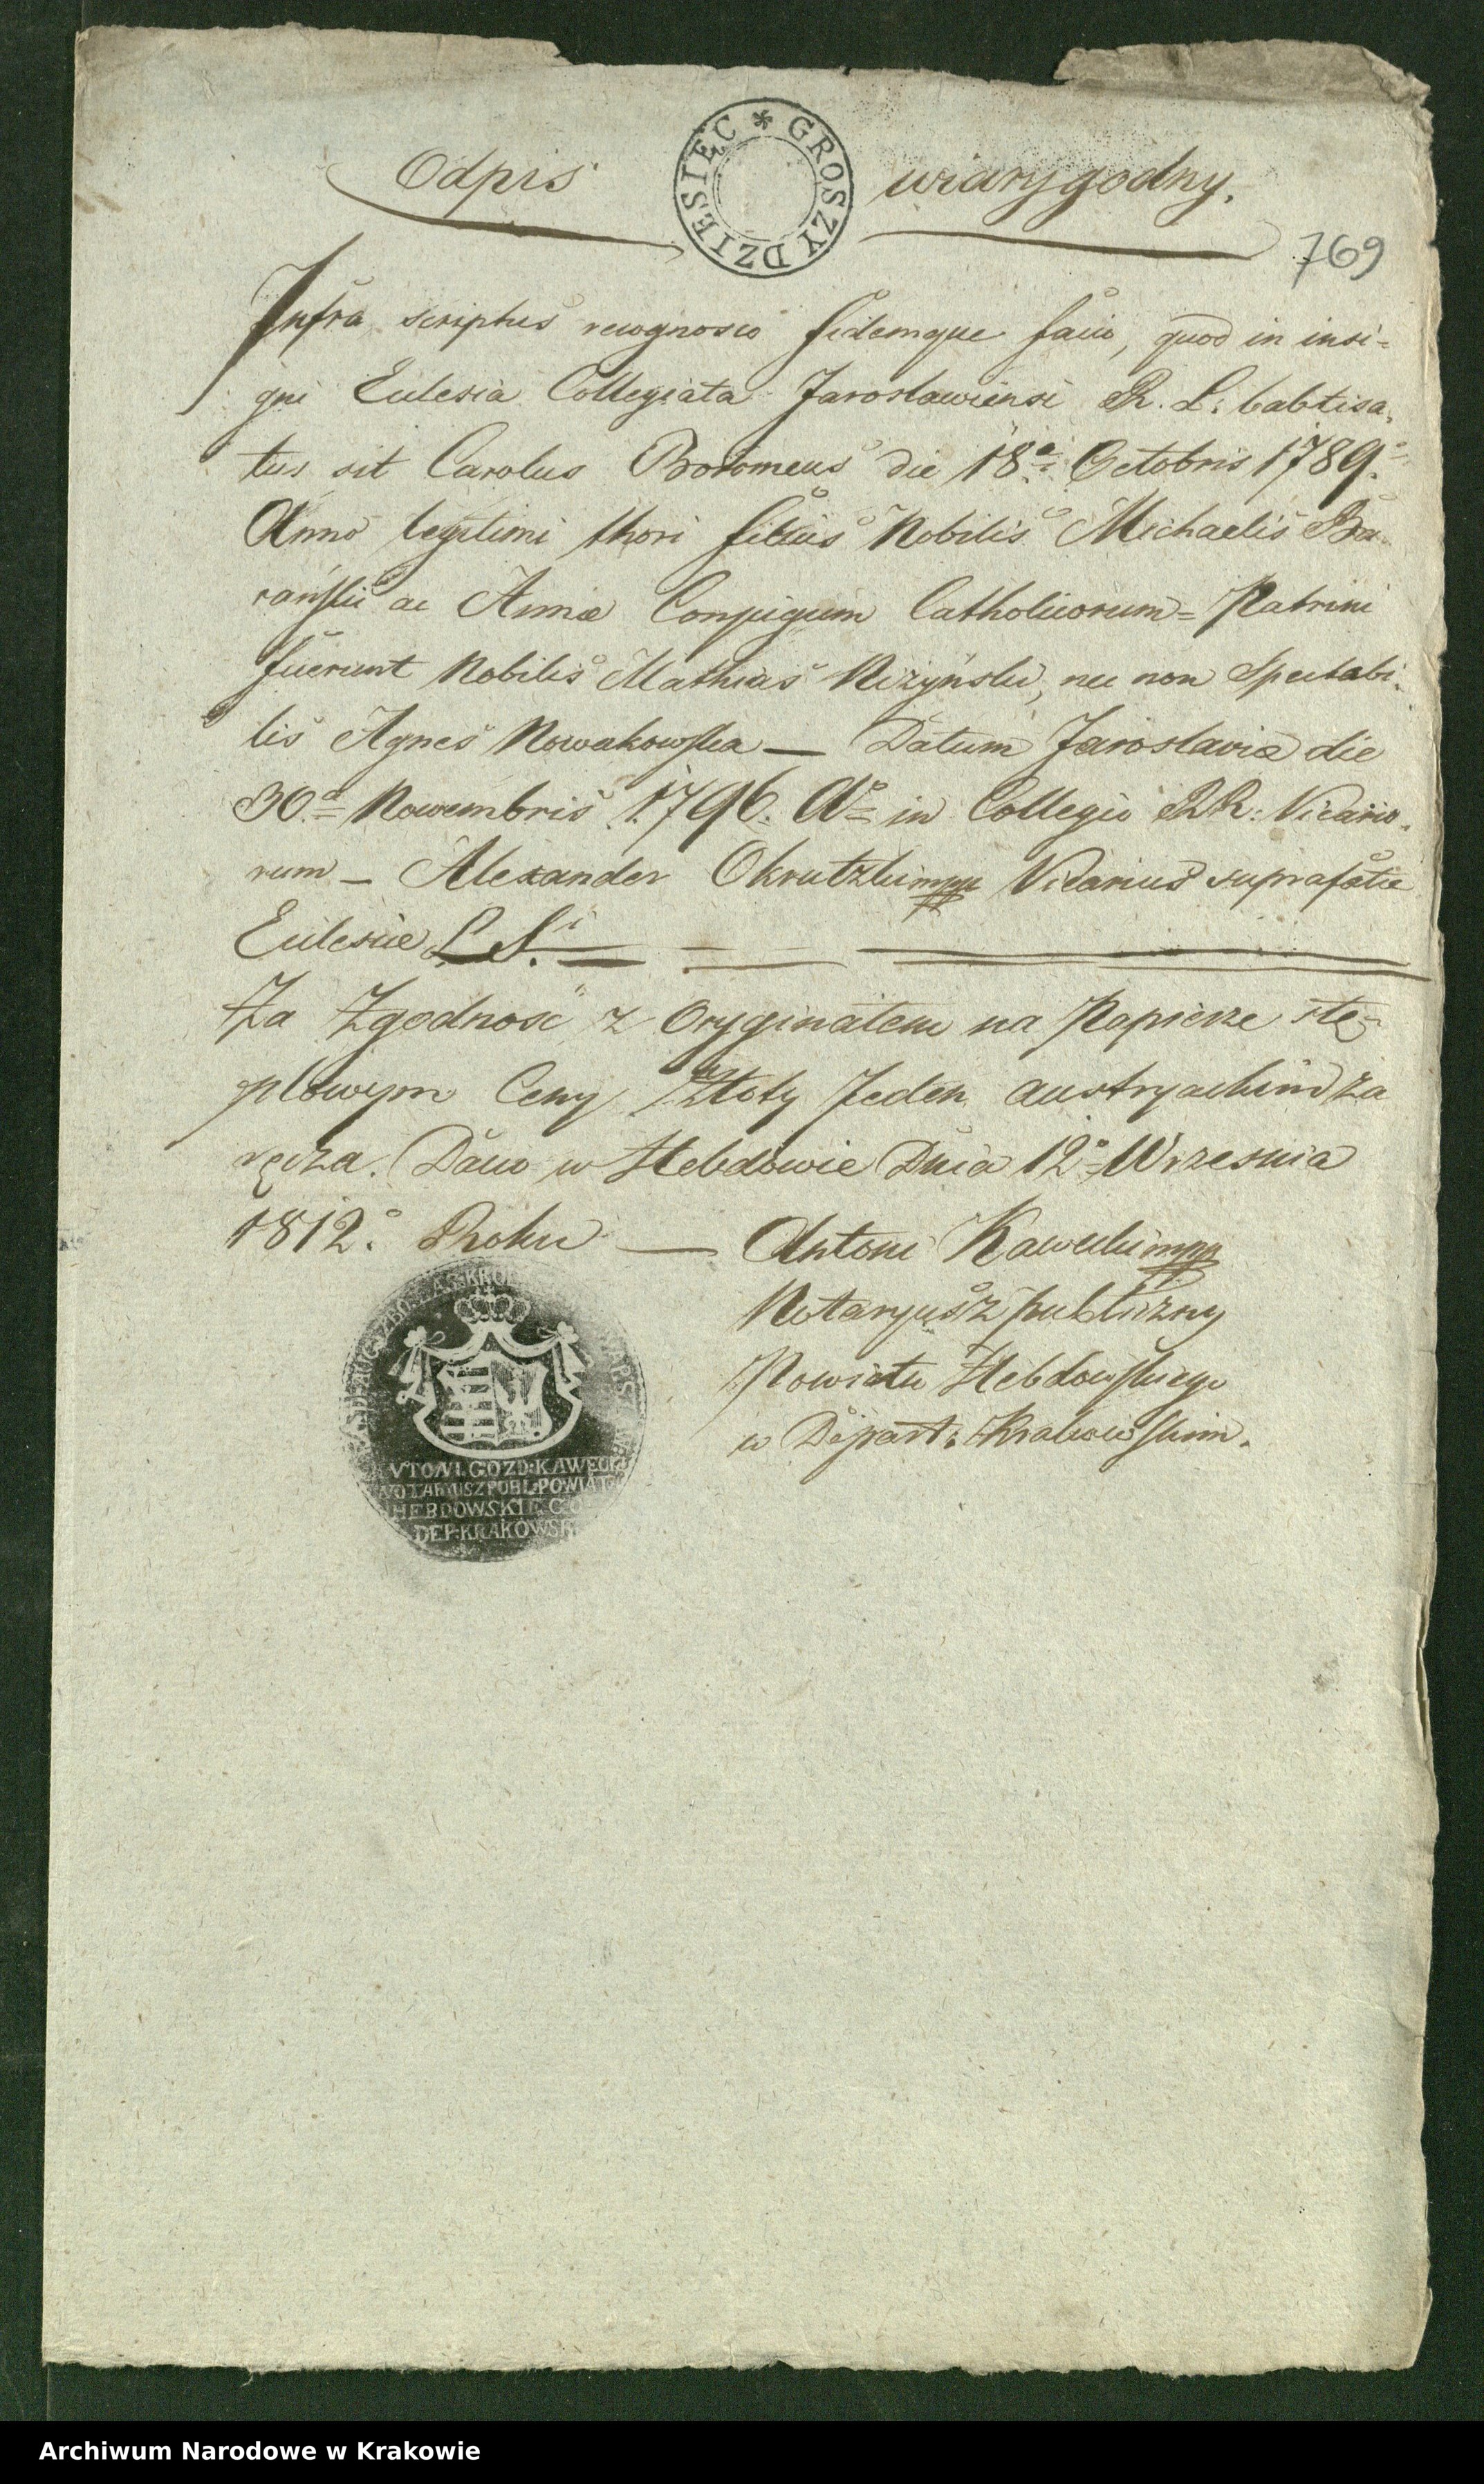 Odpis wiarygodny.
GROSZY DZIESIĘC
769
Infra scriptus recognosco fidemque facio, quod in insi=
gni Eclesia Collegiata Jaroslawiensi R. L: babtisa,
tus sit Carolus Boromeus die 18ª Octobris 1789.
Anno legitimi thori filius Nobilis Michaelis Ba
rańskii ac Annæ Conjugum Catholicorum = Patrini
fuerunt Nobilis Mathias Nizyński, nec non Spectabi,
lis Agnes Nowakowska — Datum Jaroslaviæ die
30ª Nowembris 1796. Aº in Collegio RR: Vicario,
rum — Alexander Okrutzki mpp Vicarius suprafatæ
Eclesiæ L. S.
Za Zgodność z Oryginałem na Papierze stę=
plowym Ceny Złoty Jeden austryackim za
ręcza. Dano w Hebdowie Dnia 12º Wrzesnia
1812º Roku — Antoni Kawecki mpp
Notaryusz publiczny
Powiatu Hebdowskiego
w Depart: Krakowskim.
ANTONI GOZD: KAWECKI
NOTARIUSZ PUBL: POWIAT:
HEBDOWSKIEGO
DEP: KRAKOWSK
Archiwum Narodowe w Krakowie